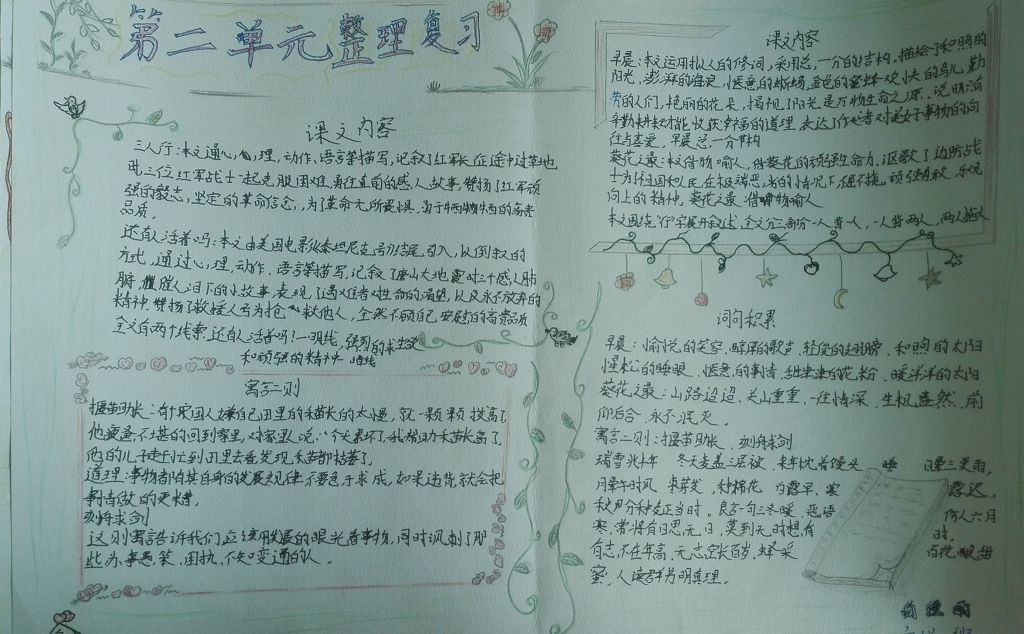 第二单元整理复习
课文内容
三人行:本文通过心理,动作,语言等描写,记叙了红军长征途中过草地
时,三位红军战士一起克服困难,勇往直前的感人故事,赞扬了红军顽
强的毅志,坚定的革命信念,为了革命无所畏惧,勇于牺牲的高贵
品质。
还有人活着吗:本文由美国电影《泰坦尼克号》的结尾引入,以倒叙的
方式,通过心理,动作,语言等描写,记叙了唐山大地震时三个感人肺
腑,催人泪下的小故事,表现了遇难者对生命的渴望,以及永不放弃的
精神,赞扬了救援人员为抢救他人,全然不顾自己安危的高贵品质
全文有两个线索,还有人活着吗!一明线,强烈的求生欲
和顽强的精神 暗线
寓言二则
揠苗助长:古时宋国人嫌自己田里的禾苗长的太慢,就一颗颗拔高了
他疲惫不堪的回到家里,对家里人说:今天累坏了,我帮助禾苗长高了,
他的儿子赶忙到田里去看发现禾苗都枯萎了。
道理:事物都有其自身的发展规律,不要急于求成,如果违背,就会把
事情做的更糟,
刻舟求剑
这则寓言告诉我们,应该用发展的眼光看事物,同时讽刺了那
些办事愚笨,固执,不知变通的人。
课文内容
早晨:本文运用拟人的修词,采用总,一分的结构,描绘了和煦的
阳光,澎湃的海浪,惬意的蜥蜴,金色的蜜蜂欢快的鸟儿,勤
劳的人们,艳丽的花朵,揭视了阳光是万物生命之源,说明治
辛勤耕耘才能收获幸福的道理,表达了作者对美好事物的向
往与喜爱,早晨总一分结构
葵花之最:本文借物喻人,借葵花的顽强生命力,讴歌了边防战
士为了祖国和人民,在极端恶劣的情况下,不屈不挠,顽强
向上的精神,葵花之最借物喻人
本文围绕“行”字展开叙述,全文分三部分一人背一人,一人背两人,两人
词句积累
早晨:愉悦的笑容、醇厚的歌声、轻盈的翅膀、和煦的太阳
惺忪的睡眼、惬意的事情、甜津津的花粉、暖洋洋的太阳
葵花之最:山路迢迢、关山重重、一往情深、生机盎然、前
仰后合、永不泯灭。
寓言二则:揠苗助长、刻舟求剑
瑞雪兆丰年 冬天麦盖三层被 来年枕着馒头 睡 日晕三更雨,
月晕午时风 枣芽发,种棉花 白露早、寒 露迟,
秋分种麦正当时,良言一句三冬暖,恶语 伤人六月
寒,常将有日思无日,莫到无时想有 时,
有志不在年高,无志空长百岁,蜂采 百花酿甜
蜜,人读群书明真理。